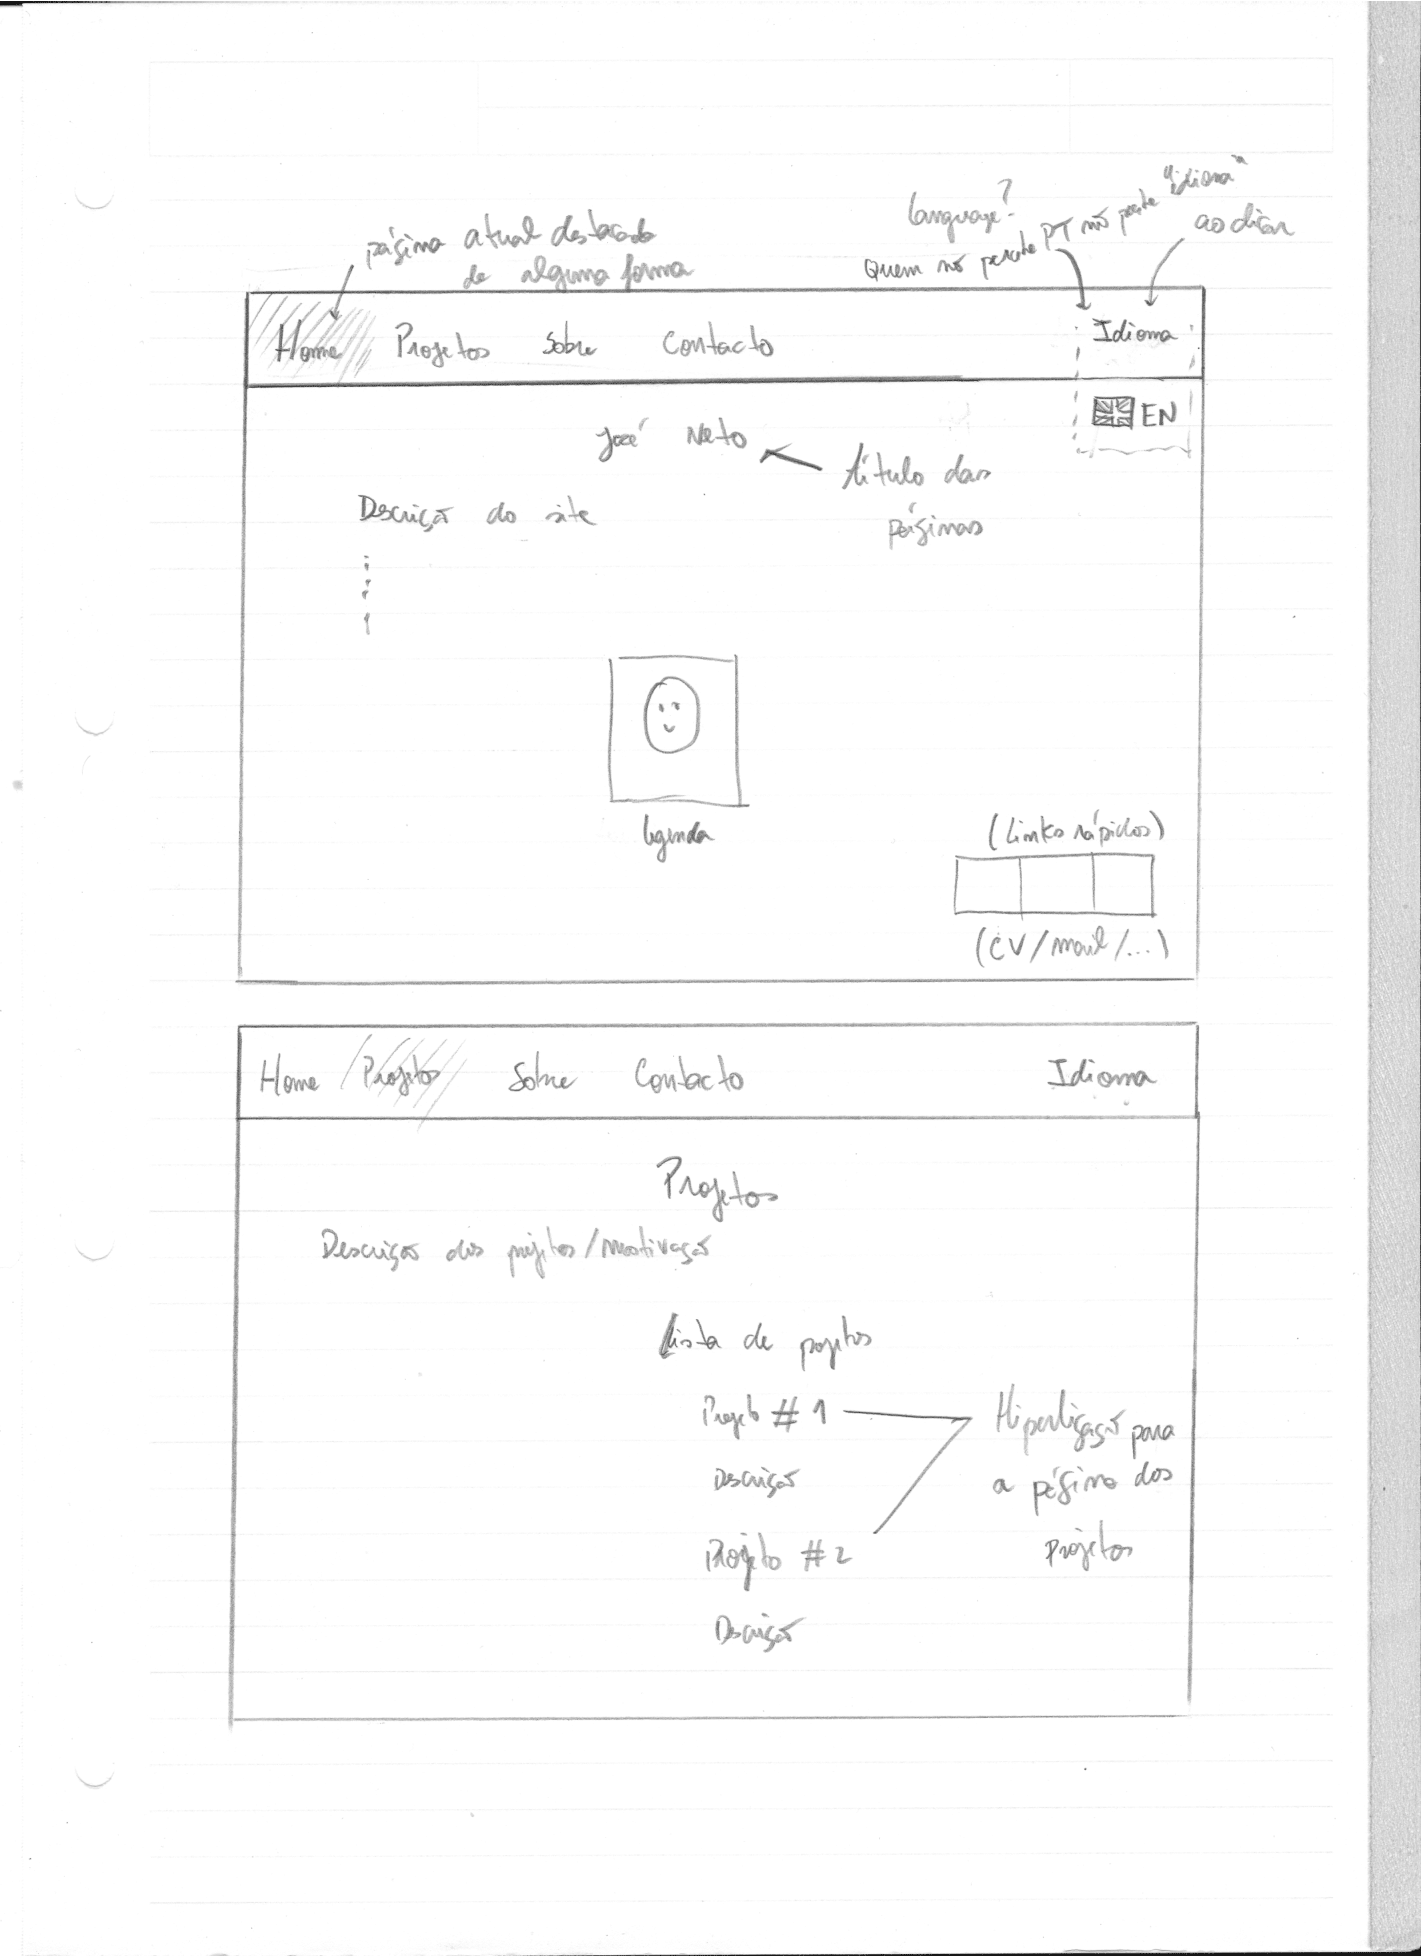 página atual destacada
de alguma forma
Language?
Quem não percebe PT não percebe "idioma"
ao clicar
Home Projetos Sobre Contacto Idioma
EN
José Neto
título das
páginas
Descrição do site
legenda
(Links rápidos)
(CV/mail/...)
Home Projetos Sobre Contacto Idioma
Projetos
Descrição dos projetos/motivação
Lista de projetos
Projeto #1
Descrição
Projeto #2
Descrição
Hiperligação para
a página dos
projetos